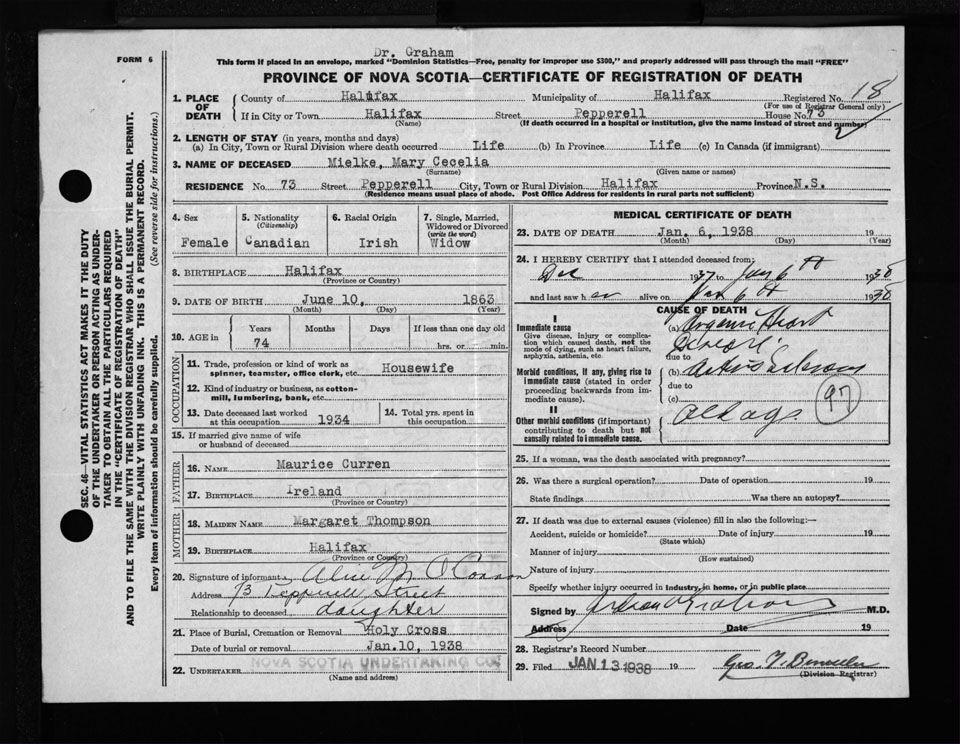 Dr. Graham
FORM 6
This form if placed in an envelope, marked "Dominion Statistics—Free, penalty for improper use $300," and properly addressed will pass through the mail "FREE"
PROVINCE OF NOVA SCOTIA—CERTIFICATE OF REGISTRATION OF DEATH
SEC. 46—VITAL STATISTICS ACT MAKES IT THE DUTY
OF THE UNDERTAKER OR PERSON ACTING AS UNDER-
TAKER TO OBTAIN ALL THE PARTICULARS REQUIRED
IN THE "CERTIFICATE OF REGISTRATION OF DEATH"
AND TO FILE THE SAME WITH THE DIVISION REGISTRAR WHO SHALL ISSUE THE BURIAL PERMIT.
WRITE PLAINLY WITH UNFADING INK. THIS IS A PERMANENT RECORD.
Every item of information should be carefully supplied. (See reverse side for instructions.)
1. PLACE OF DEATH County of Halifax Municipality of Halifax Registered No. 18
(For use of Registrar General only)
If in City or Town Halifax Street Pepperell House No. 73
(Name) (If death occurred in a hospital or institution, give the name instead of street and number)
2
2. LENGTH OF STAY (in years, months and days)
(a) In City, Town or Rural Division where death occurred Life (b) In Province Life (c) In Canada (if immigrant)
3. NAME OF DECEASED Mielke, Mary Cecelia
(Surname) (Given name or names)
RESIDENCE No. 73 Street Pepperell City, Town or Rural Division Halifax Province N.S.
(Residence means usual place of abode. Post Office Address for residents in rural parts not sufficient)
4. Sex 5. Nationality 6. Racial Origin 7. Single, Married,
(Citizenship) Widowed or Divorced
(write the word)
Female Canadian Irish Widow
8. BIRTHPLACE Halifax
(Province or Country)
9. DATE OF BIRTH June 10, 1863
(Month) (Day) (Year)
10. AGE in Years Months Days If less than one day old
74 hrs. or min.
OCCUPATION
11. Trade, profession or kind of work as
spinner, teamster, office clerk, etc. Housewife
12. Kind of industry or business, as cotton-
mill, lumbering, bank, etc.
13. Date deceased last worked
at this occupation 1934
14. Total yrs. spent in
this occupation
15. If married give name of wife
or husband of deceased
FATHER
16. NAME Maurice Curren
17. BIRTHPLACE Ireland
(Province or Country)
MOTHER
18. MAIDEN NAME Margaret Thompson
19. BIRTHPLACE Halifax
(Province or Country)
20. Signature of informant Alice M
Address 73 Pepperell Street
Relationship to deceased daughter
21. Place of Burial, Cremation or Removal Holy Cross
Date of burial or removal Jan. 10, 1938
22. UNDERTAKER NOVA SCOTIA UNDERTAKING CO.
(Name and address)
MEDICAL CERTIFICATE OF DEATH
23. DATE OF DEATH Jan. 6, 1938 19
(Month) (Day) (Year)
24. I HEREBY CERTIFY that I attended deceased from:
Dec 1937 to Jan 6th 1938
and last saw her alive on Jan 6th 1938
CAUSE OF DEATH
I
Immediate cause
Give disease, injury or complica-
tion which caused death, not the
mode of dying, such as heart failure,
asphyxia, asthenia, etc.
(a) Organic Heart
due to
Morbid conditions, if any, giving rise to
immediate cause (stated in order
proceeding backwards from im-
mediate cause).
(b)
due to
(c)
II
Other morbid conditions (if important)
contributing to death but not
causally related to immediate cause.
Old age 97
25. If a woman, was the death associated with pregnancy?
26. Was there a surgical operation? Date of operation 19
State findings Was there an autopsy?
27. If death was due to external causes (violence) fill in also the following:—
Accident, suicide or homicide? Date of injury 19
(State which)
Manner of injury
(How sustained)
Nature of injury
Specify whether injury occurred in industry, in home, or in public place
Signed by Graham M.D.
Address Date 19
28. Registrar's Record Number
29. Filed JAN 13 1938 19 Geo. T.
(Division Registrar)